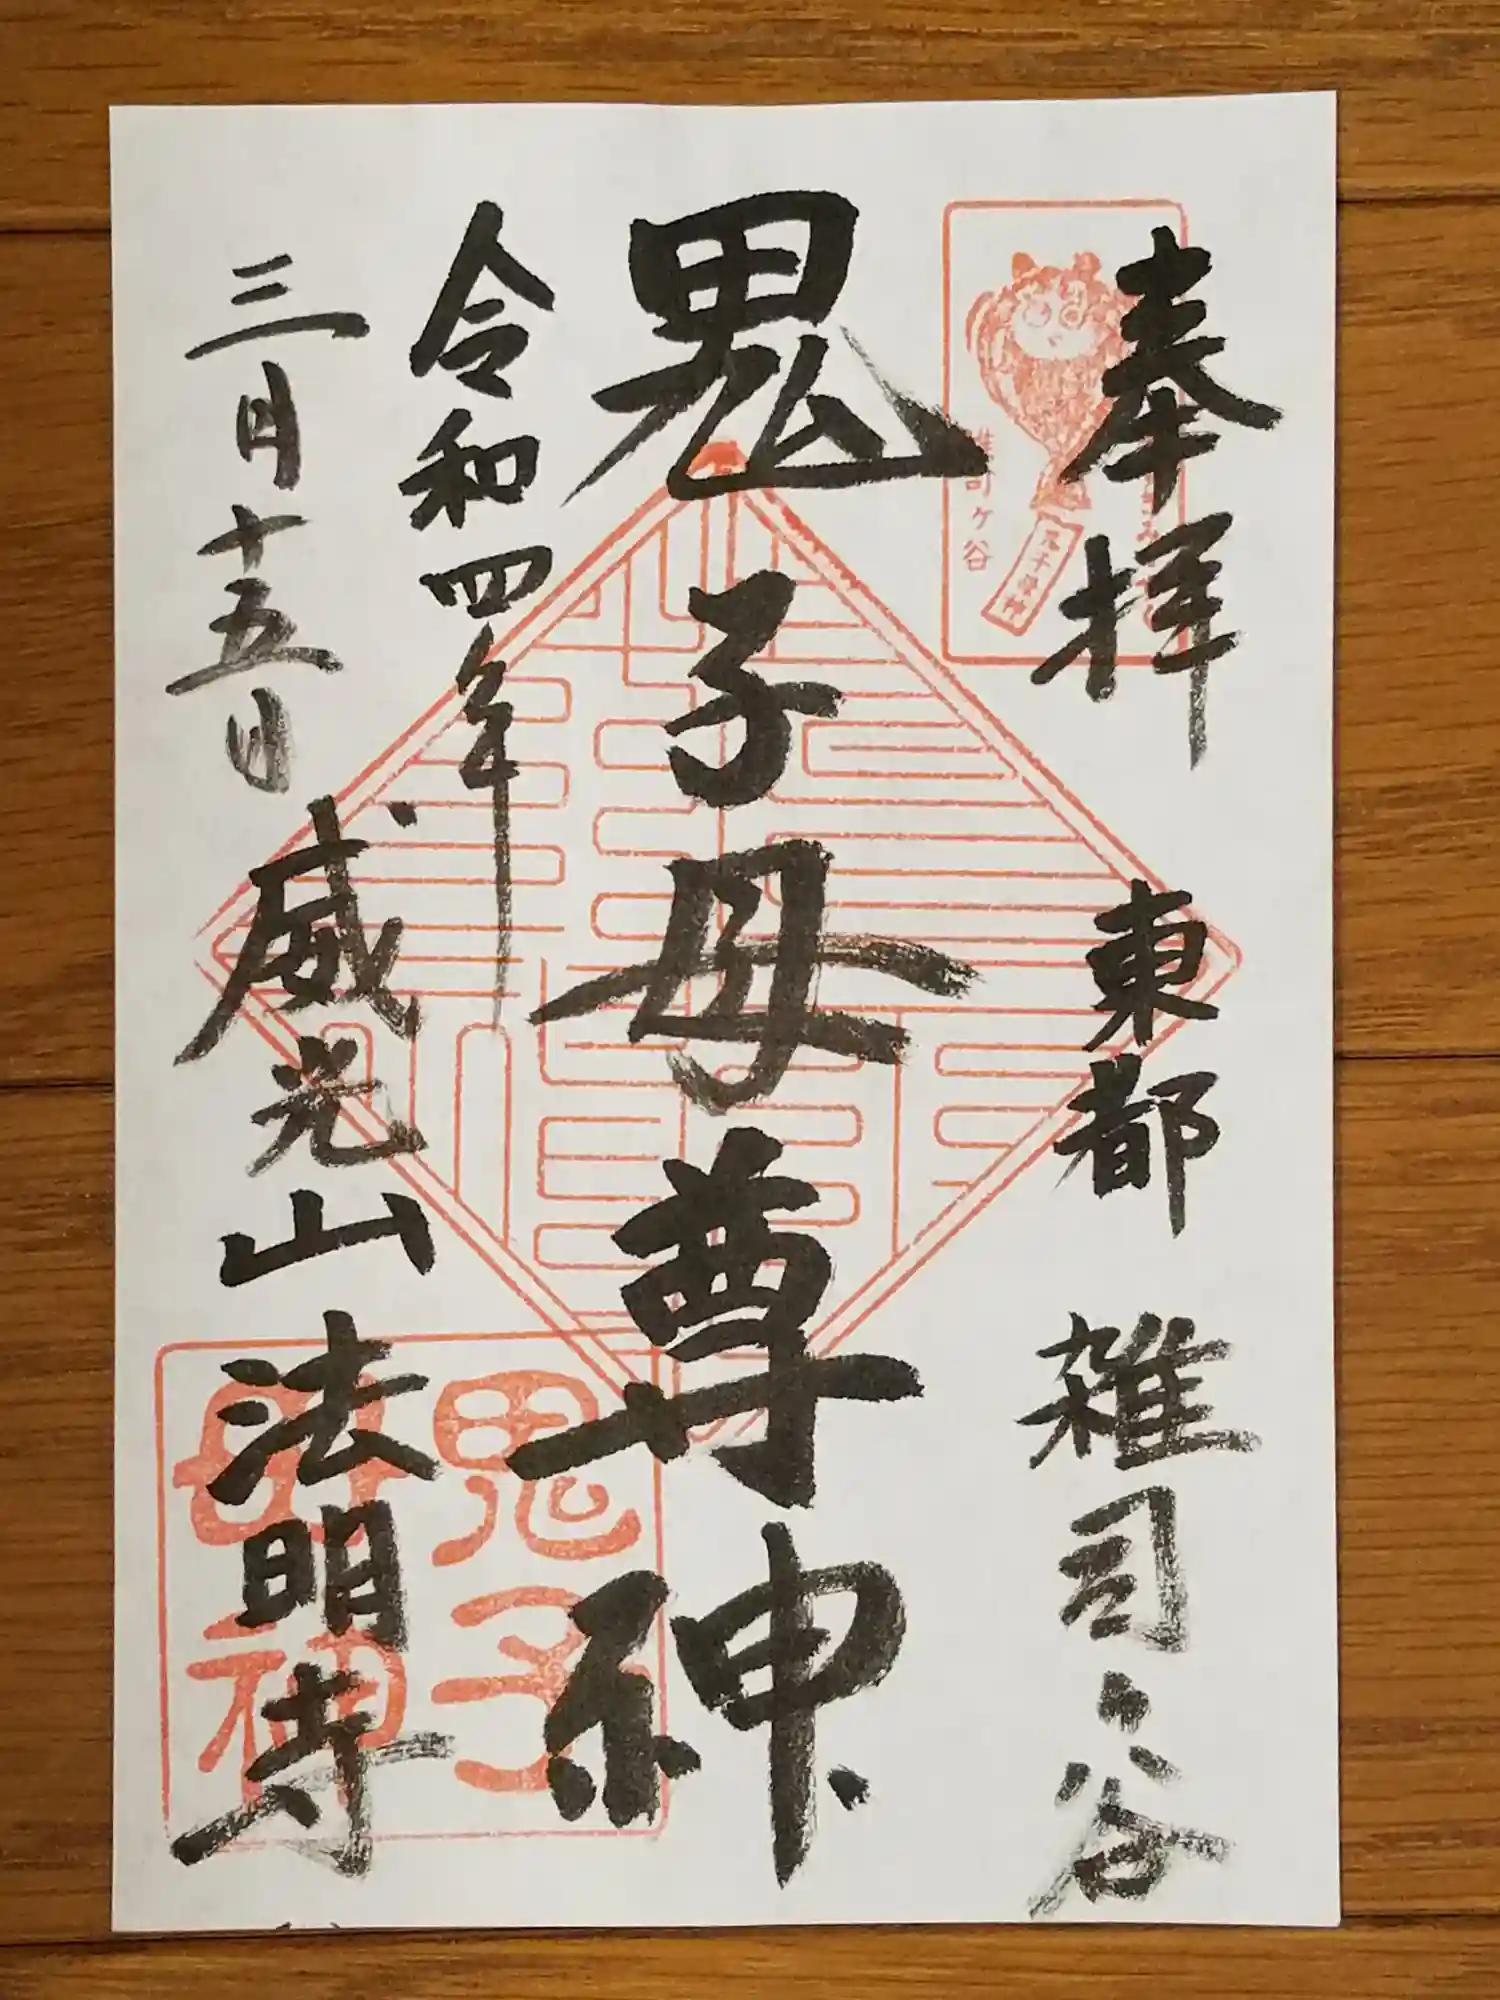 奉拝
東都
雑司ヶ谷
鬼子母尊神
令和四年
三月十五日
威光山
法明寺
雑司ヶ谷
鬼子母神
鬼子
母神